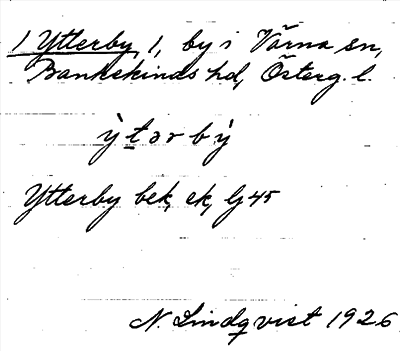 1 Ytterby 1, by i Vårna sn,
Bankekinds hd, Österg. l.
ỳtərbỳ
Ytterby bek, ek, Lj 45
N. Lindqvist 1926